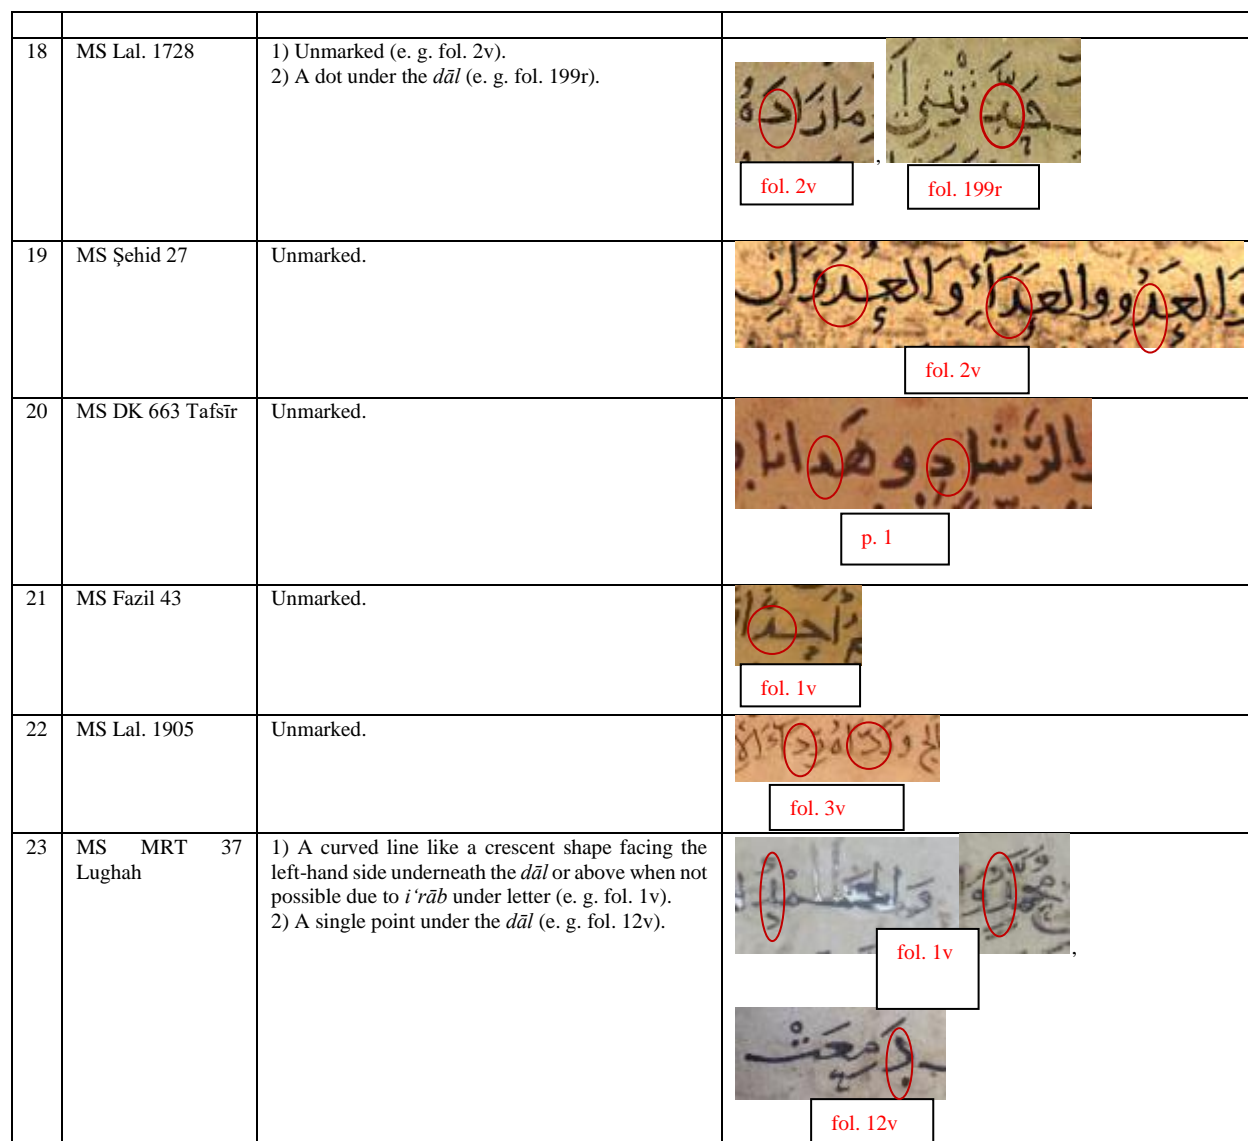 18 MS Lal. 1728 1) Unmarked (e. g. fol. 2v).
2) A dot under the dāl (e. g. fol. 199r).
مَازَادَهُ
,
fol. 2v
fol. 199r
19 MS Şehid 27 Unmarked.
وَالعِدْوِ والعِدَآءِ وَالعِدْوَانِ
fol. 2v
20 MS DK 663 Tafsīr Unmarked.
الرَّشادِ وهَدانا
p. 1
21 MS Fazil 43 Unmarked.
fol. 1v
22 MS Lal. 1905 Unmarked.
fol. 3v
23 MS MRT 37 1) A curved line like a crescent shape facing the
Lughah left-hand side underneath the dāl or above when not
possible due to i‘rāb under letter (e. g. fol. 1v).
2) A single point under the dāl (e. g. fol. 12v).
,
fol. 1v
دَمِعَتْ
fol. 12v